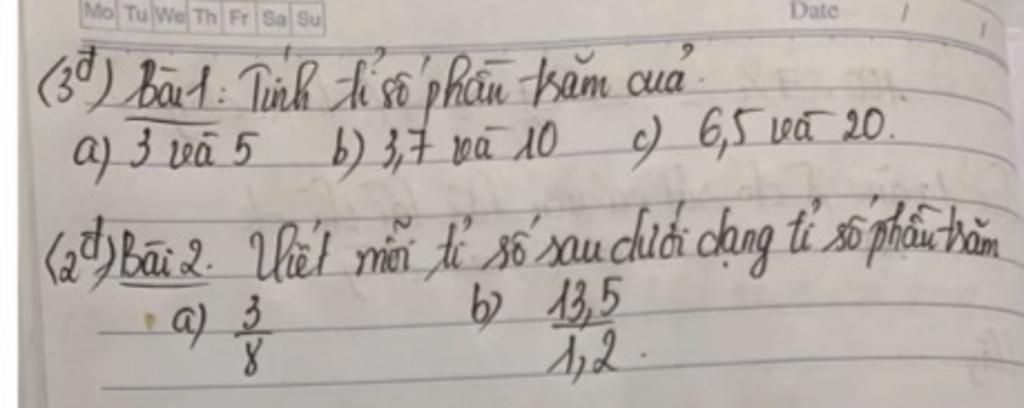 Mo Tu We Th Fr Sa Su Date / /
(3đ) Bài 1: Tính tỉ số phần trăm của.
a) 3 và 5 b) 3,7 và 10 c) 6,5 và 20.
(2đ) Bài 2. Viết mỗi tỉ số sau dưới dạng tỉ số phần trăm
a) 3/8 b) 13,5/1,2.